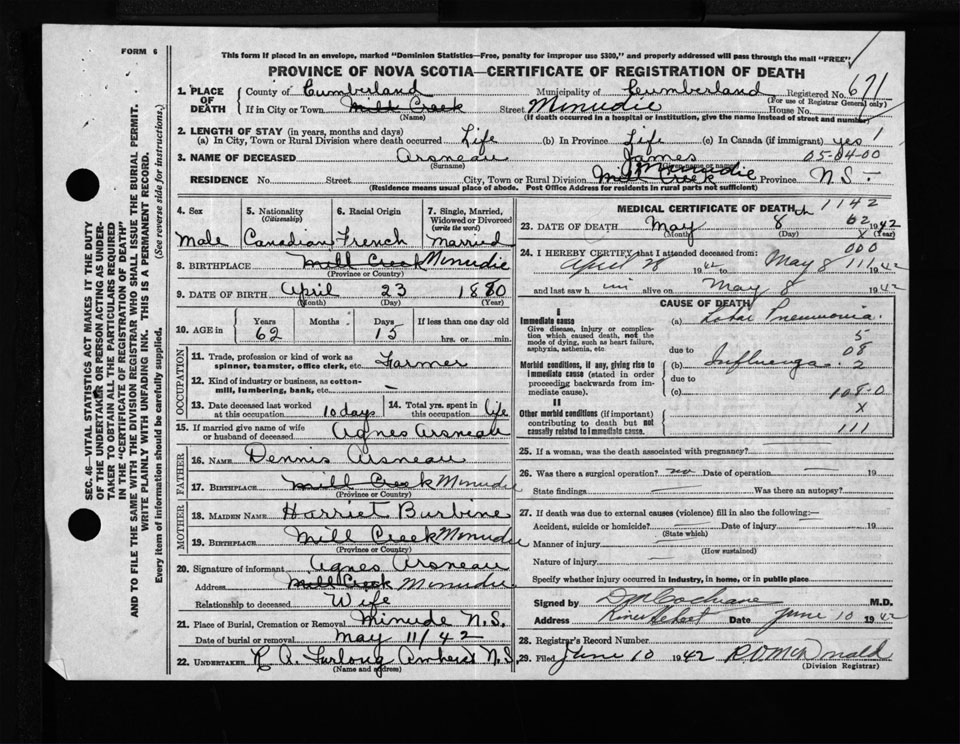 FORM 6
This form if placed in an envelope, marked "Dominion Statistics—Free, penalty for improper use $300," and properly addressed will pass through the mail "FREE"
PROVINCE OF NOVA SCOTIA—CERTIFICATE OF REGISTRATION OF DEATH
SEC. 46—VITAL STATISTICS ACT MAKES IT THE DUTY
OF THE UNDERTAKER OR PERSON ACTING AS UNDER-
TAKER TO OBTAIN ALL THE PARTICULARS REQUIRED
IN THE "CERTIFICATE OF REGISTRATION OF DEATH"
AND TO FILE THE SAME WITH THE DIVISION REGISTRAR WHO SHALL ISSUE THE BURIAL PERMIT.
WRITE PLAINLY WITH UNFADING INK. THIS IS A PERMANENT RECORD.
Every item of information should be carefully supplied. (See reverse side for instructions.)
1. PLACE OF DEATH County of Cumberland Municipality of Cumberland Registered No. 671
(For use of Registrar General only)
If in City or Town Mill Creek Street Minudie House No.
(Name) (If death occurred in a hospital or institution, give the name instead of street and number)
2. LENGTH OF STAY (in years, months and days)
(a) In City, Town or Rural Division where death occurred Life (b) In Province Life (c) In Canada (if immigrant) yes 1
3. NAME OF DECEASED Arsneau James 05-04-00
(Surname) (Given name or names)
RESIDENCE No. Street City, Town or Rural Division Mill Creek Minudie Province N.S.
(Residence means usual place of abode. Post Office Address for residents in rural parts not sufficient)
4. Sex 5. Nationality (Citizenship) 6. Racial Origin 7. Single, Married, Widowed or Divorced (write the word)
Male Canadian French married
8. BIRTHPLACE Mill Creek Minudie
(Province or Country)
9. DATE OF BIRTH April 23 1880
(Month) (Day) (Year)
10. AGE in Years Months Days If less than one day old
62 15 hrs. or min.
OCCUPATION
11. Trade, profession or kind of work as spinner, teamster, office clerk, etc. Farmer
12. Kind of industry or business, as cotton-mill, lumbering, bank, etc. —
13. Date deceased last worked at this occupation 10 days 14. Total yrs. spent in this occupation life
15. If married give name of wife or husband of deceased Agnes Arsneau
FATHER
16. NAME Dennis Arsneau
17. BIRTHPLACE Mill Creek Minudie
(Province or Country)
MOTHER
18. MAIDEN NAME Harriet Burbine
19. BIRTHPLACE Mill Creek Minudie
(Province or Country)
20. Signature of informant Agnes Arsneau
Address Mill Creek Minudie
Relationship to deceased Wife
21. Place of Burial, Cremation or Removal Minude N.S.
Date of burial or removal May 11/42
22. UNDERTAKER Furlong Amherst N.S.
(Name and address)
MEDICAL CERTIFICATE OF DEATH 1142
23. DATE OF DEATH May 8th 1942
62
(Month) (Day) x (Year)
24. I HEREBY CERTIFY that I attended deceased from: 000
April 28 1942 to May 8 111 1942
and last saw h im alive on May 8 1942
CAUSE OF DEATH
I
Immediate cause
Give disease, injury or complication which caused death, not the mode of dying, such as heart failure, asphyxia, asthenia, etc.
(a) Lobar Pneumonia.
5
due to 08
Morbid conditions, if any, giving rise to immediate cause (stated in order proceeding backwards from immediate cause).
(b) Influenza 2
due to
(c) 108-0
II
x
Other morbid conditions (if important) contributing to death but not causally related to immediate cause.
111
25. If a woman, was the death associated with pregnancy?
26. Was there a surgical operation? no Date of operation — 19
State findings — Was there an autopsy?
27. If death was due to external causes (violence) fill in also the following:—
Accident, suicide or homicide? — Date of injury — 19
(State which)
Manner of injury —
(How sustained)
Nature of injury —
Specify whether injury occurred in industry, in home, or in public place
Signed by D M Cochrane M.D.
Address River Hebert Date June 10 1942
28. Registrar's Record Number
29. Filed June 10 1942 R O McDonald
(Division Registrar)